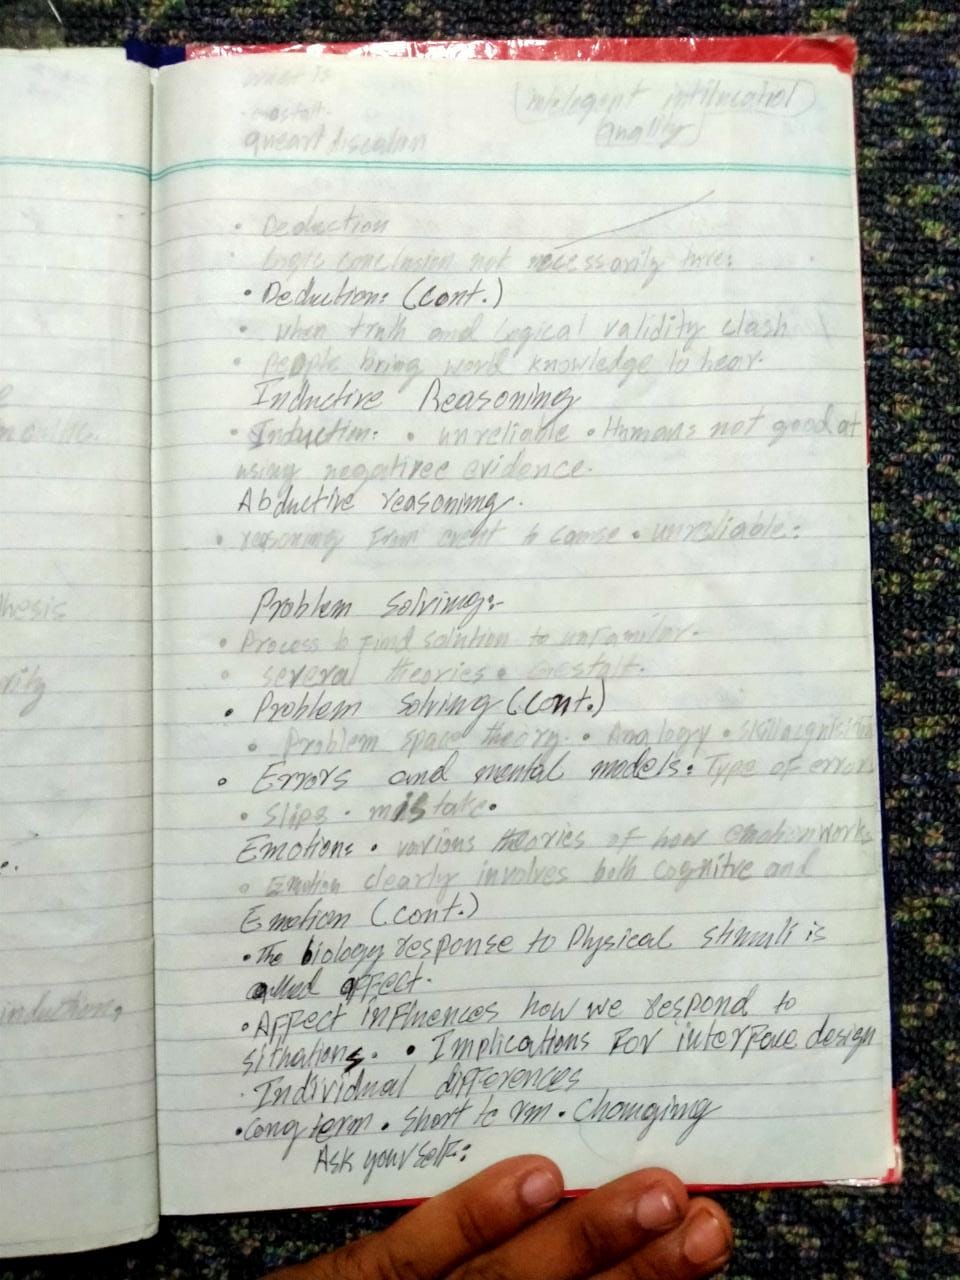 what is
• Gestalt.
intelegent
quality
• Deduction
• Logic conclusion not necessarily true:
• Deduction: (cont.)
• when truth and logical validity clash
• people bring world knowledge to bear.
Inductive Reasoning
• Induction: • unreliable • Humans not good at
using negatiree evidence.
Abductive reasoning.
• reasoning From event to cause • unreliable:
Problem Solving:-
• Process to Find solution to unFamiliar.
• several theories • Gestalt.
• Problem Solving (Cont.)
• Problem space theory. • Analogy • skill acqnisition
• Errors and mental models: Type of errors
• Slips • mistake.
Emotion: • various theories of how emotion works
• Emotion clearly involves both Cognitve and
Emotion (cont.)
• The biology response to Physical stimuli is
called affect.
• Affect inFluences how we respond to
sitnations. • Implications For interface design
• Individual differences
• Long term • Short term • Changing
Ask yourself:
hesis
induction,